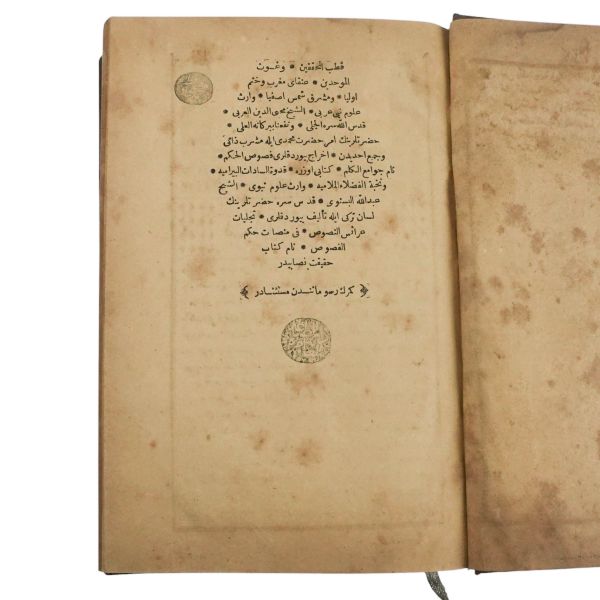 قطب المحققين * وغوث
الموحدين * عنقاى مغرب وختم
اوليا * ومشرق شمس اصفيا * وارث
علوم نبى عربى * الشيخ محي الدين العربى *
قدس الله سره الجلى * ونفعنا ببركاته العلى *
حضرتلرينك امر حضرت محمدى ايله مشرب ذاتى
وجمع احديدن * اخراج بيوردقلرى فصوص الحكم *
نام جوامع الكلم * كتابى اوزره * قدوة السادات البيراميه *
ونخبة الفضلاء الملاميه * وارث علوم نبوى * الشيخ
عبدالله البسنوى * قدس سره حضرتلرينك
لسان تركى ايله تأليف بيوردقلرى * تجليات
عرائس النصوص * فى منصات حكم
الفصوص * نام كتاب
حقيقت نصابيدر
﴿ كمرك رسوماتندن مستثنادر ﴾